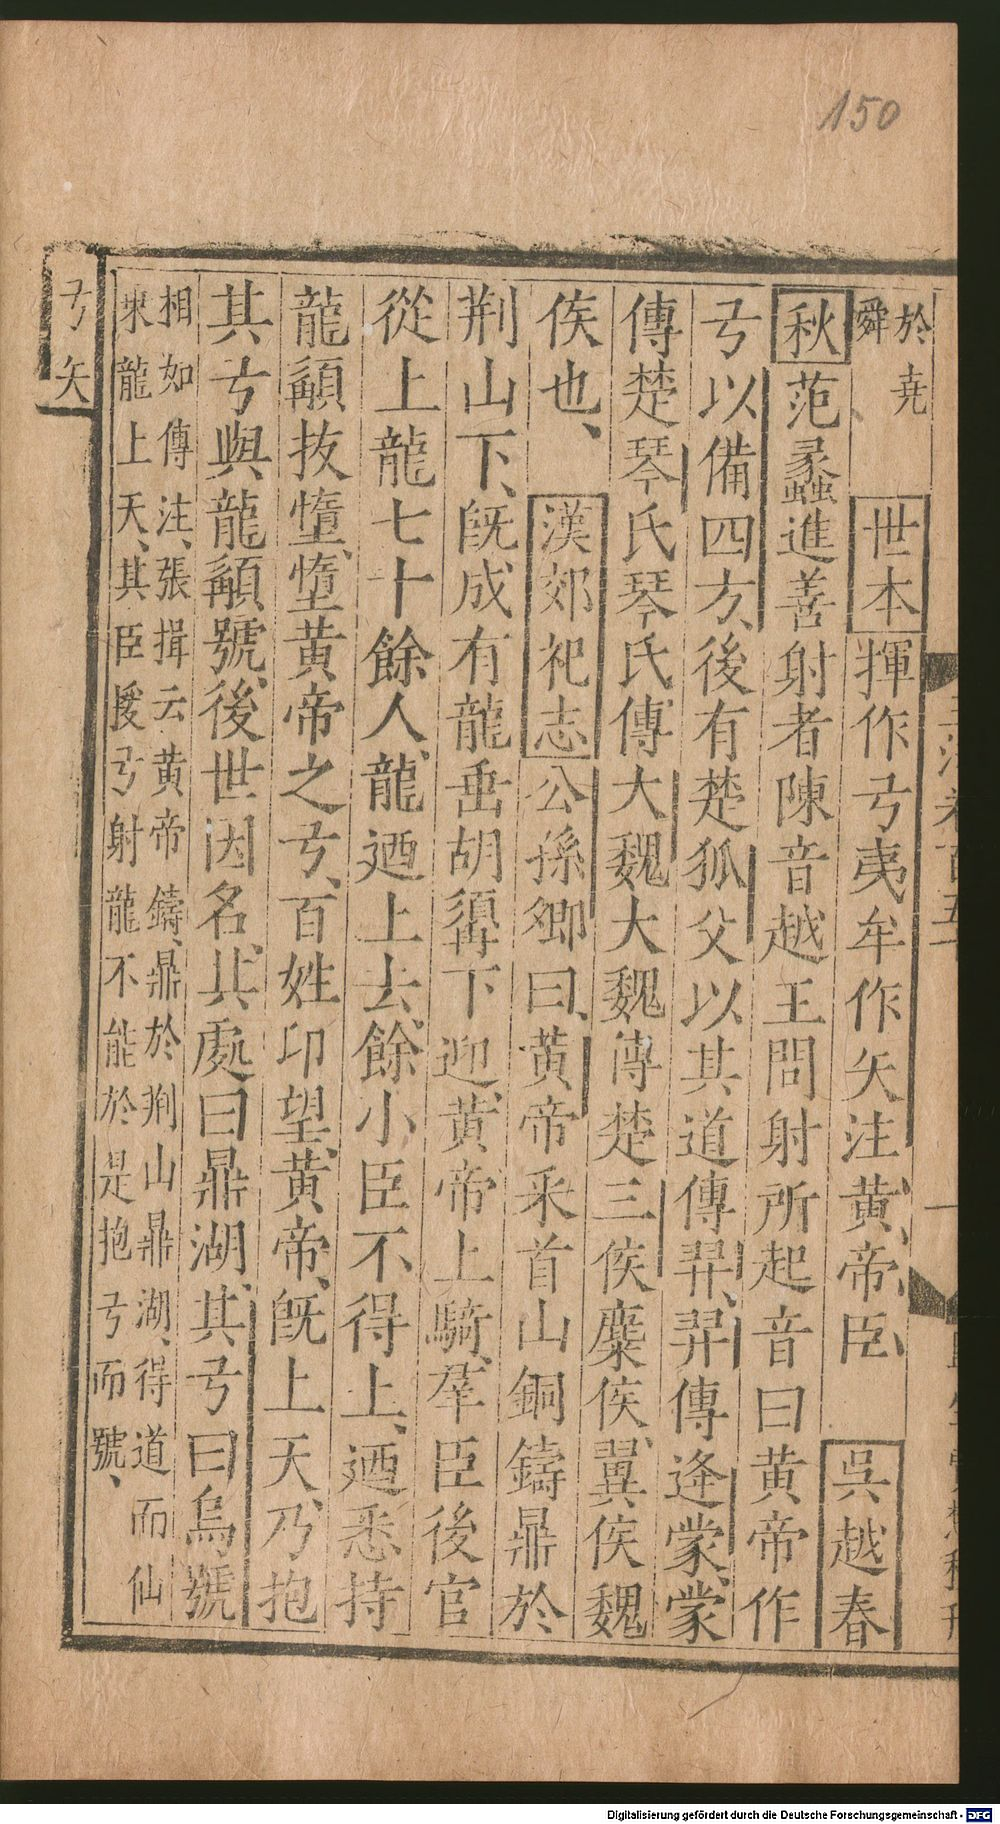 150
於堯
舜
世本揮作弓夷牟作矢注黃帝臣
吳越春
秋范蠡進善射者陳音越王問射所起音曰黃帝作
弓以備四方、後有楚狐父以其道傳羿、羿傳逢蒙、蒙
傳楚琴氏琴氏傳大魏大魏傳楚三侯麋侯、翼侯魏
侯也、漢郊祀志公孫卿曰、黃帝采首山銅鑄鼎於
荆山下、旣成、有龍垂胡䫇下迎、黃帝上騎、羣臣後宮
從上龍七十餘人、龍迺上去、餘小臣不得上、迺悉持
龍䫇拔墮、墮黃帝之弓、百姓卬望、黃帝、旣上天、乃抱
其弓與龍䫇號、後世因名、其處曰鼎湖、其弓曰烏號
相如傳注、張揖云黃帝鑄、鼎於荆山鼎湖、得道而仙
乗龍上天、其臣援弓射龍不能於是抱弓而號、
弓矢
Digitalisierung gefördert durch die Deutsche Forschungsgemeinschaft - DFG